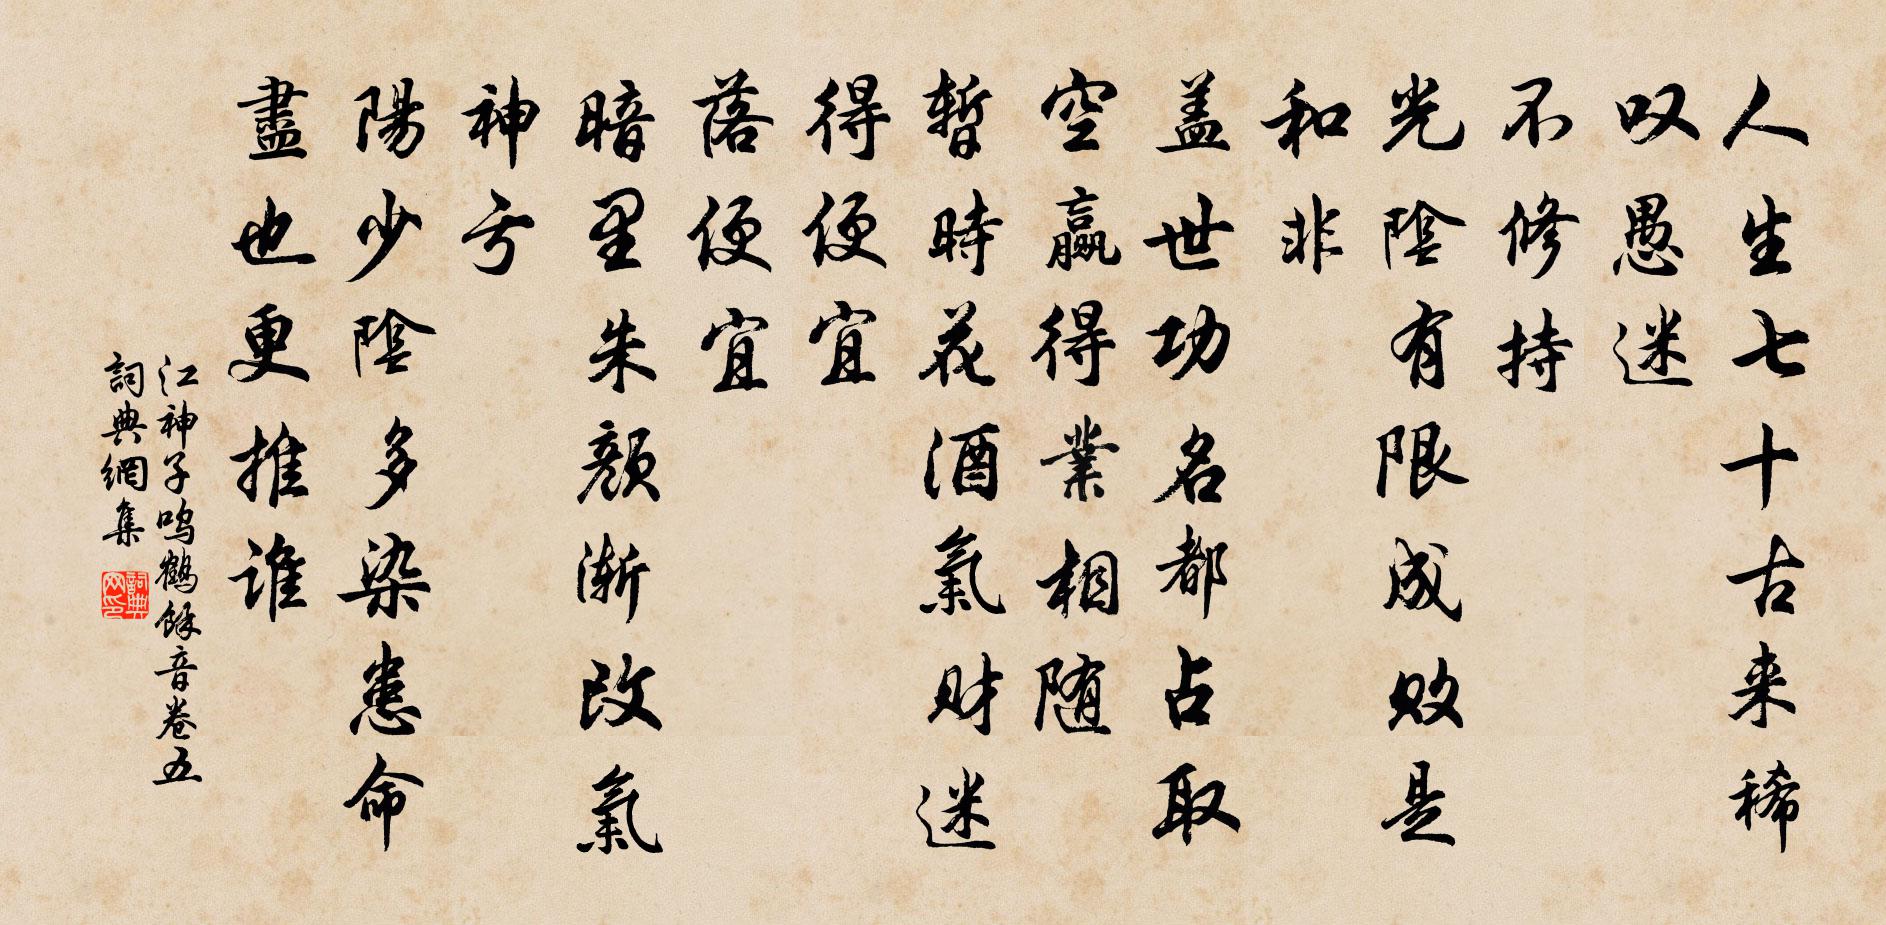 人生七十古来稀
叹愚迷
不修持
光陰有限成败是
和非
盖世功名都占取
空赢得業相随
暫時花酒氣财迷
得便宜
落便宜
暗里朱颜渐改氣
神亏
陽少陰多染患命
盡也更推谁
江神子鸣鶴餘音卷五
詞典網集
詞典网印